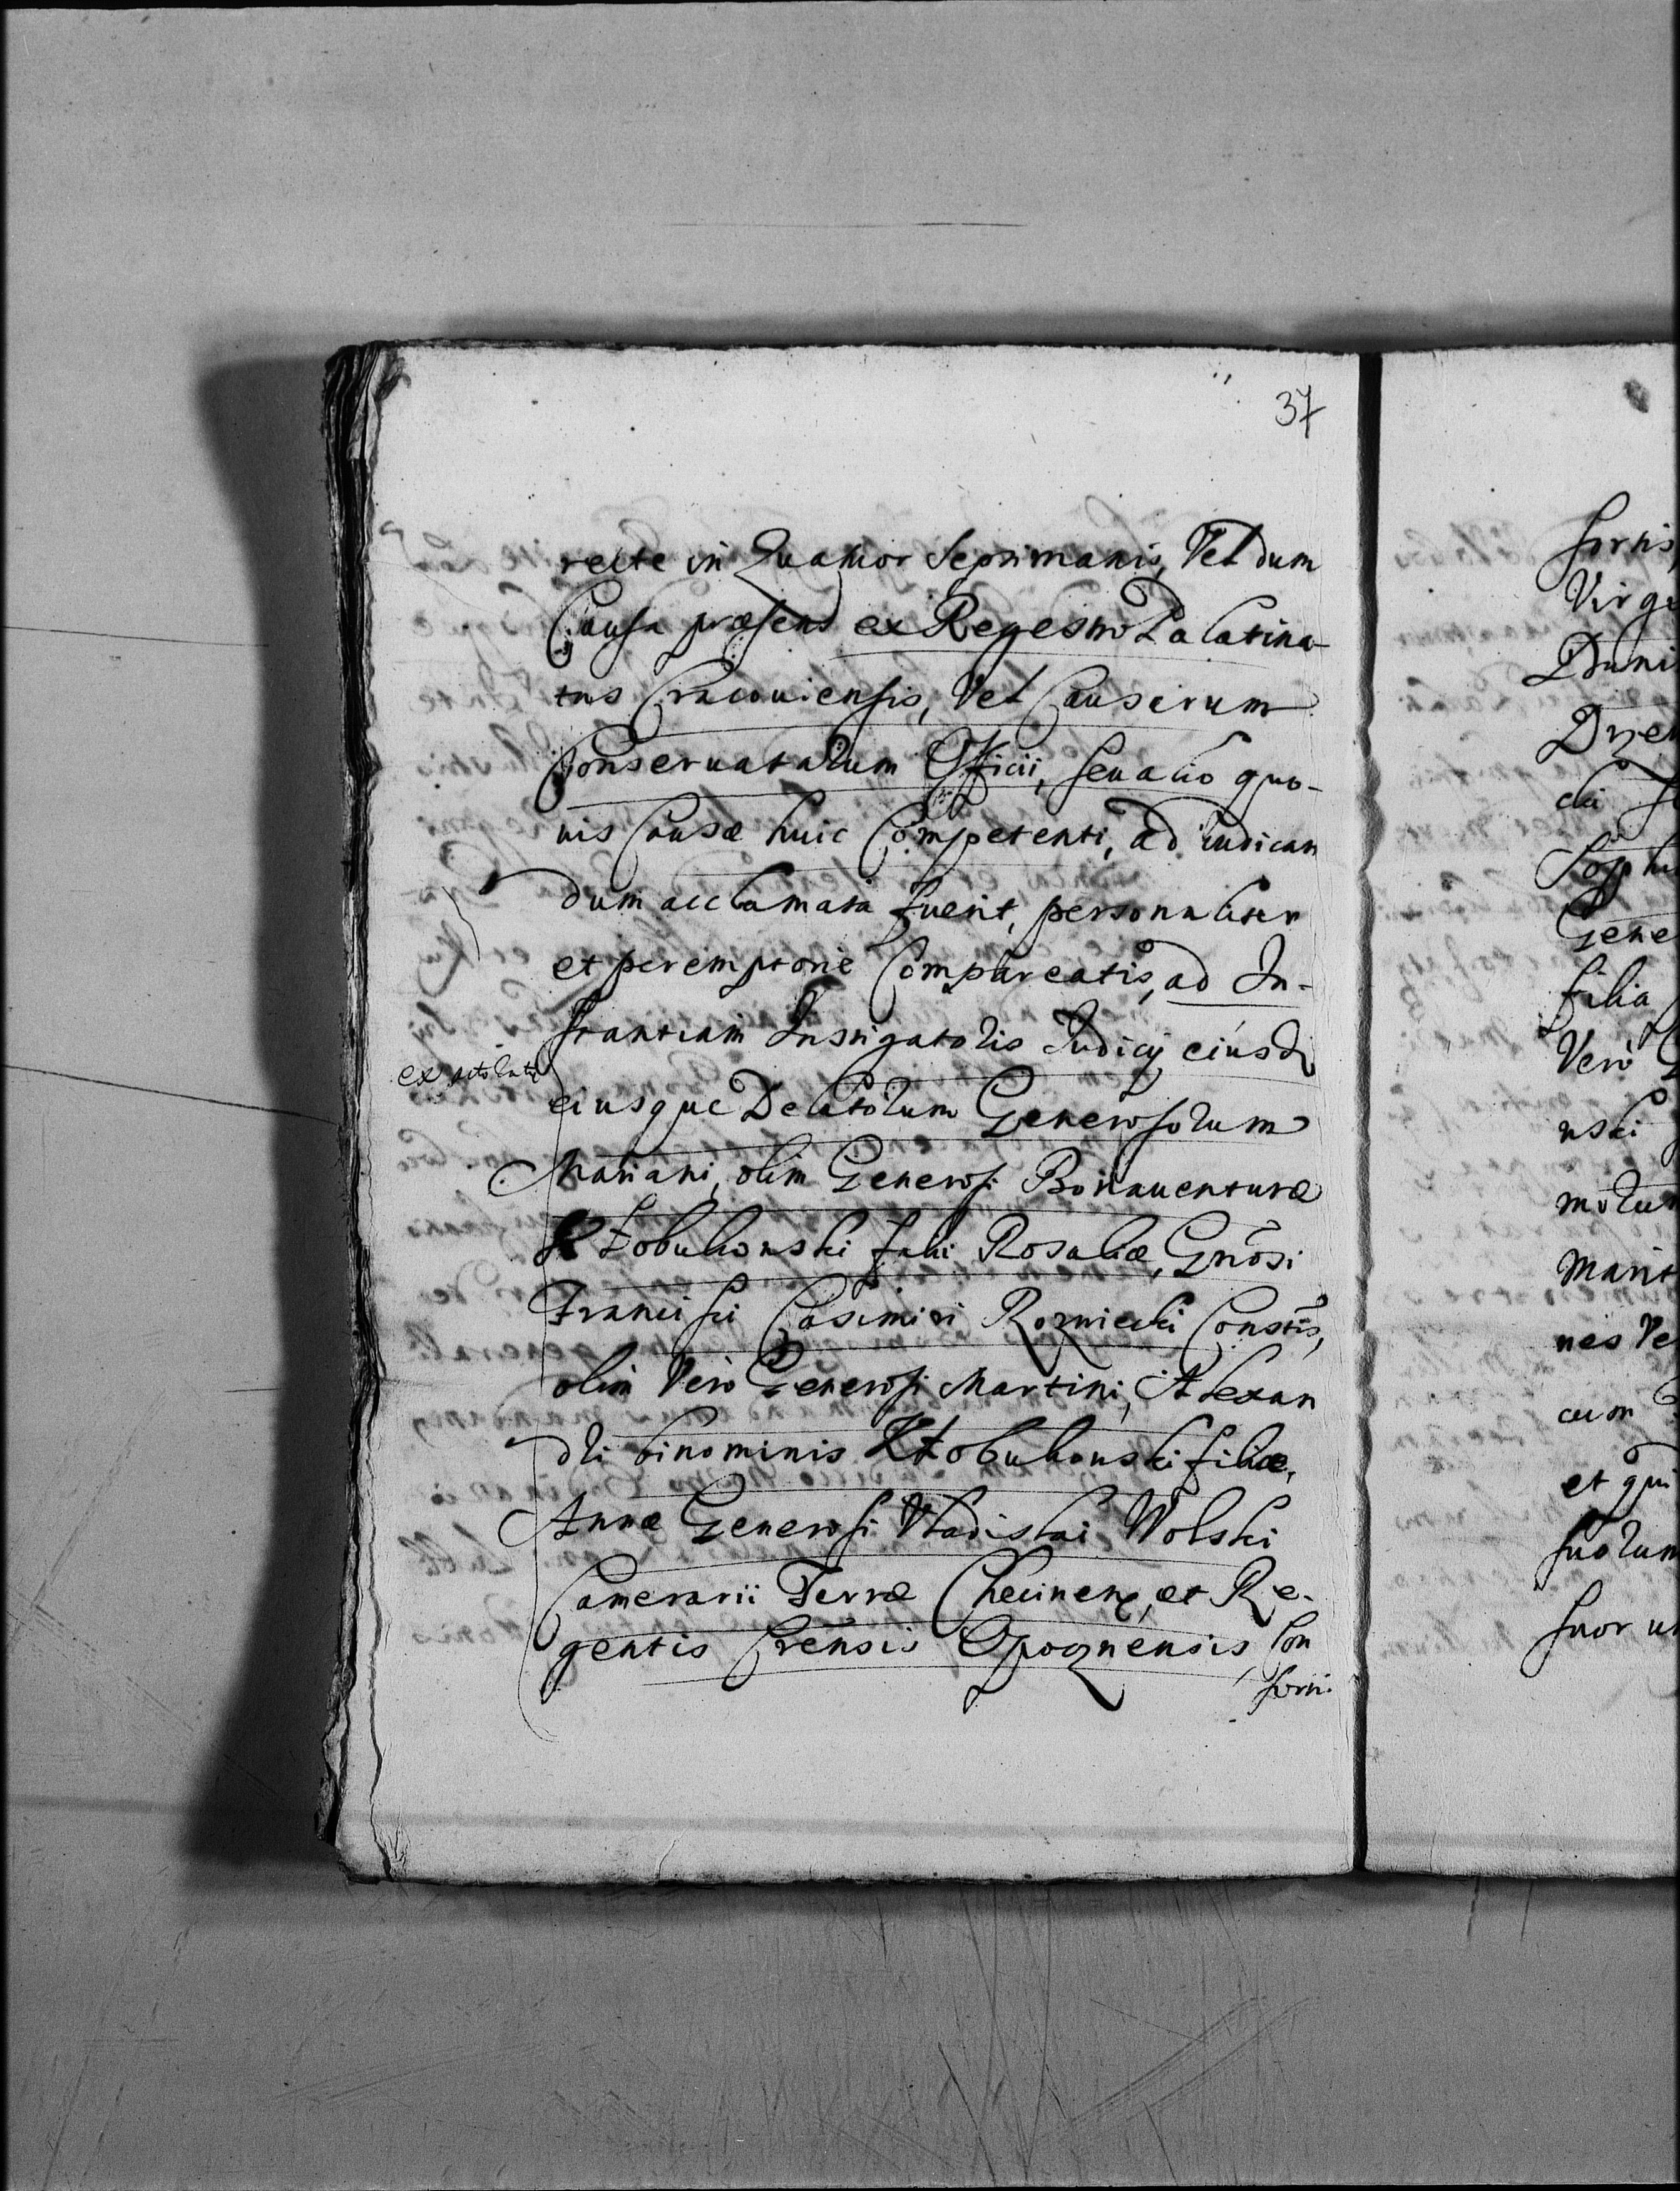 37
recte in Quatuor Septimanis, Vel dum
Causa præsens ex Regestro Palatina-
tus Cracouiensis, Vel Causarum
Conseruatarum Officii, seu alio quo-
uis Causæ huic Competenti, ad iudican
dum acclamata fuerit, personaliter
et peremptorie Compareatis, ad In-
stantiam Instigatoris Judicij eiusd
eiusque Delatorum Generosorum
Mariani, olim Generosi Bonauenturæ
Kłobukowski filii Rosaliæ, Gnosi
Francisci Casimiri Rozniecki Constis,
olim Vero Generosi Martini, Alexan
dri binominis Kłobukowski filiæ,
Annæ Generosi Vladislai Wolski
Camerarii Terræ Checinen, et Re-
gentis Crensis Opocznensis, Con
sorti.
forris
Virgi
Duni
Drze
cki
Soph
Gene
filia
Vero
wski
motu
Marit
nes Ve
cum
et qui
suorum
suor